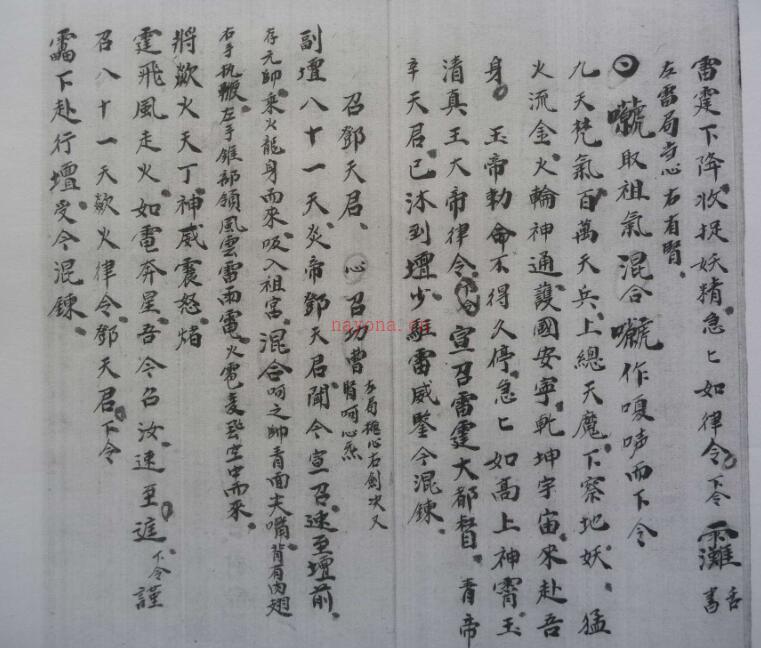 雷霆下降收捉妖精急匕如律令下令
左雷局 心右有腎
取祖氣混合 作嗄声而下令
九天梵氣百萬天兵上總天魔下察地妖猛
火流金火輪神通護國安寧乾坤宇宙來赴吾
身 玉帝勅命不得久停急匕如高上神霄玉
清真王大帝律令下令宣召雷霆大都督青帝
辛天君已沐到壇少駐雷威鑒今混鍊
召鄧天君 心召功曹
左局 心右劍次又
腎呵心炁
副壇八十一天炎帝鄧天君聞令宣召速至壇前
存元帥乘火龍身而來吸入祖宫混合呵之帥青面尖嘴背有肉翅
右手执 左手錐部領風雲雷雨電火雹 空中而來
將歘火天丁神威震怒
霆飛風走火如電奔星吾今召汝速至進下令謹
召八十一天歘火律令鄧天君下令
下赴行壇受令混鍊
nayona.cn